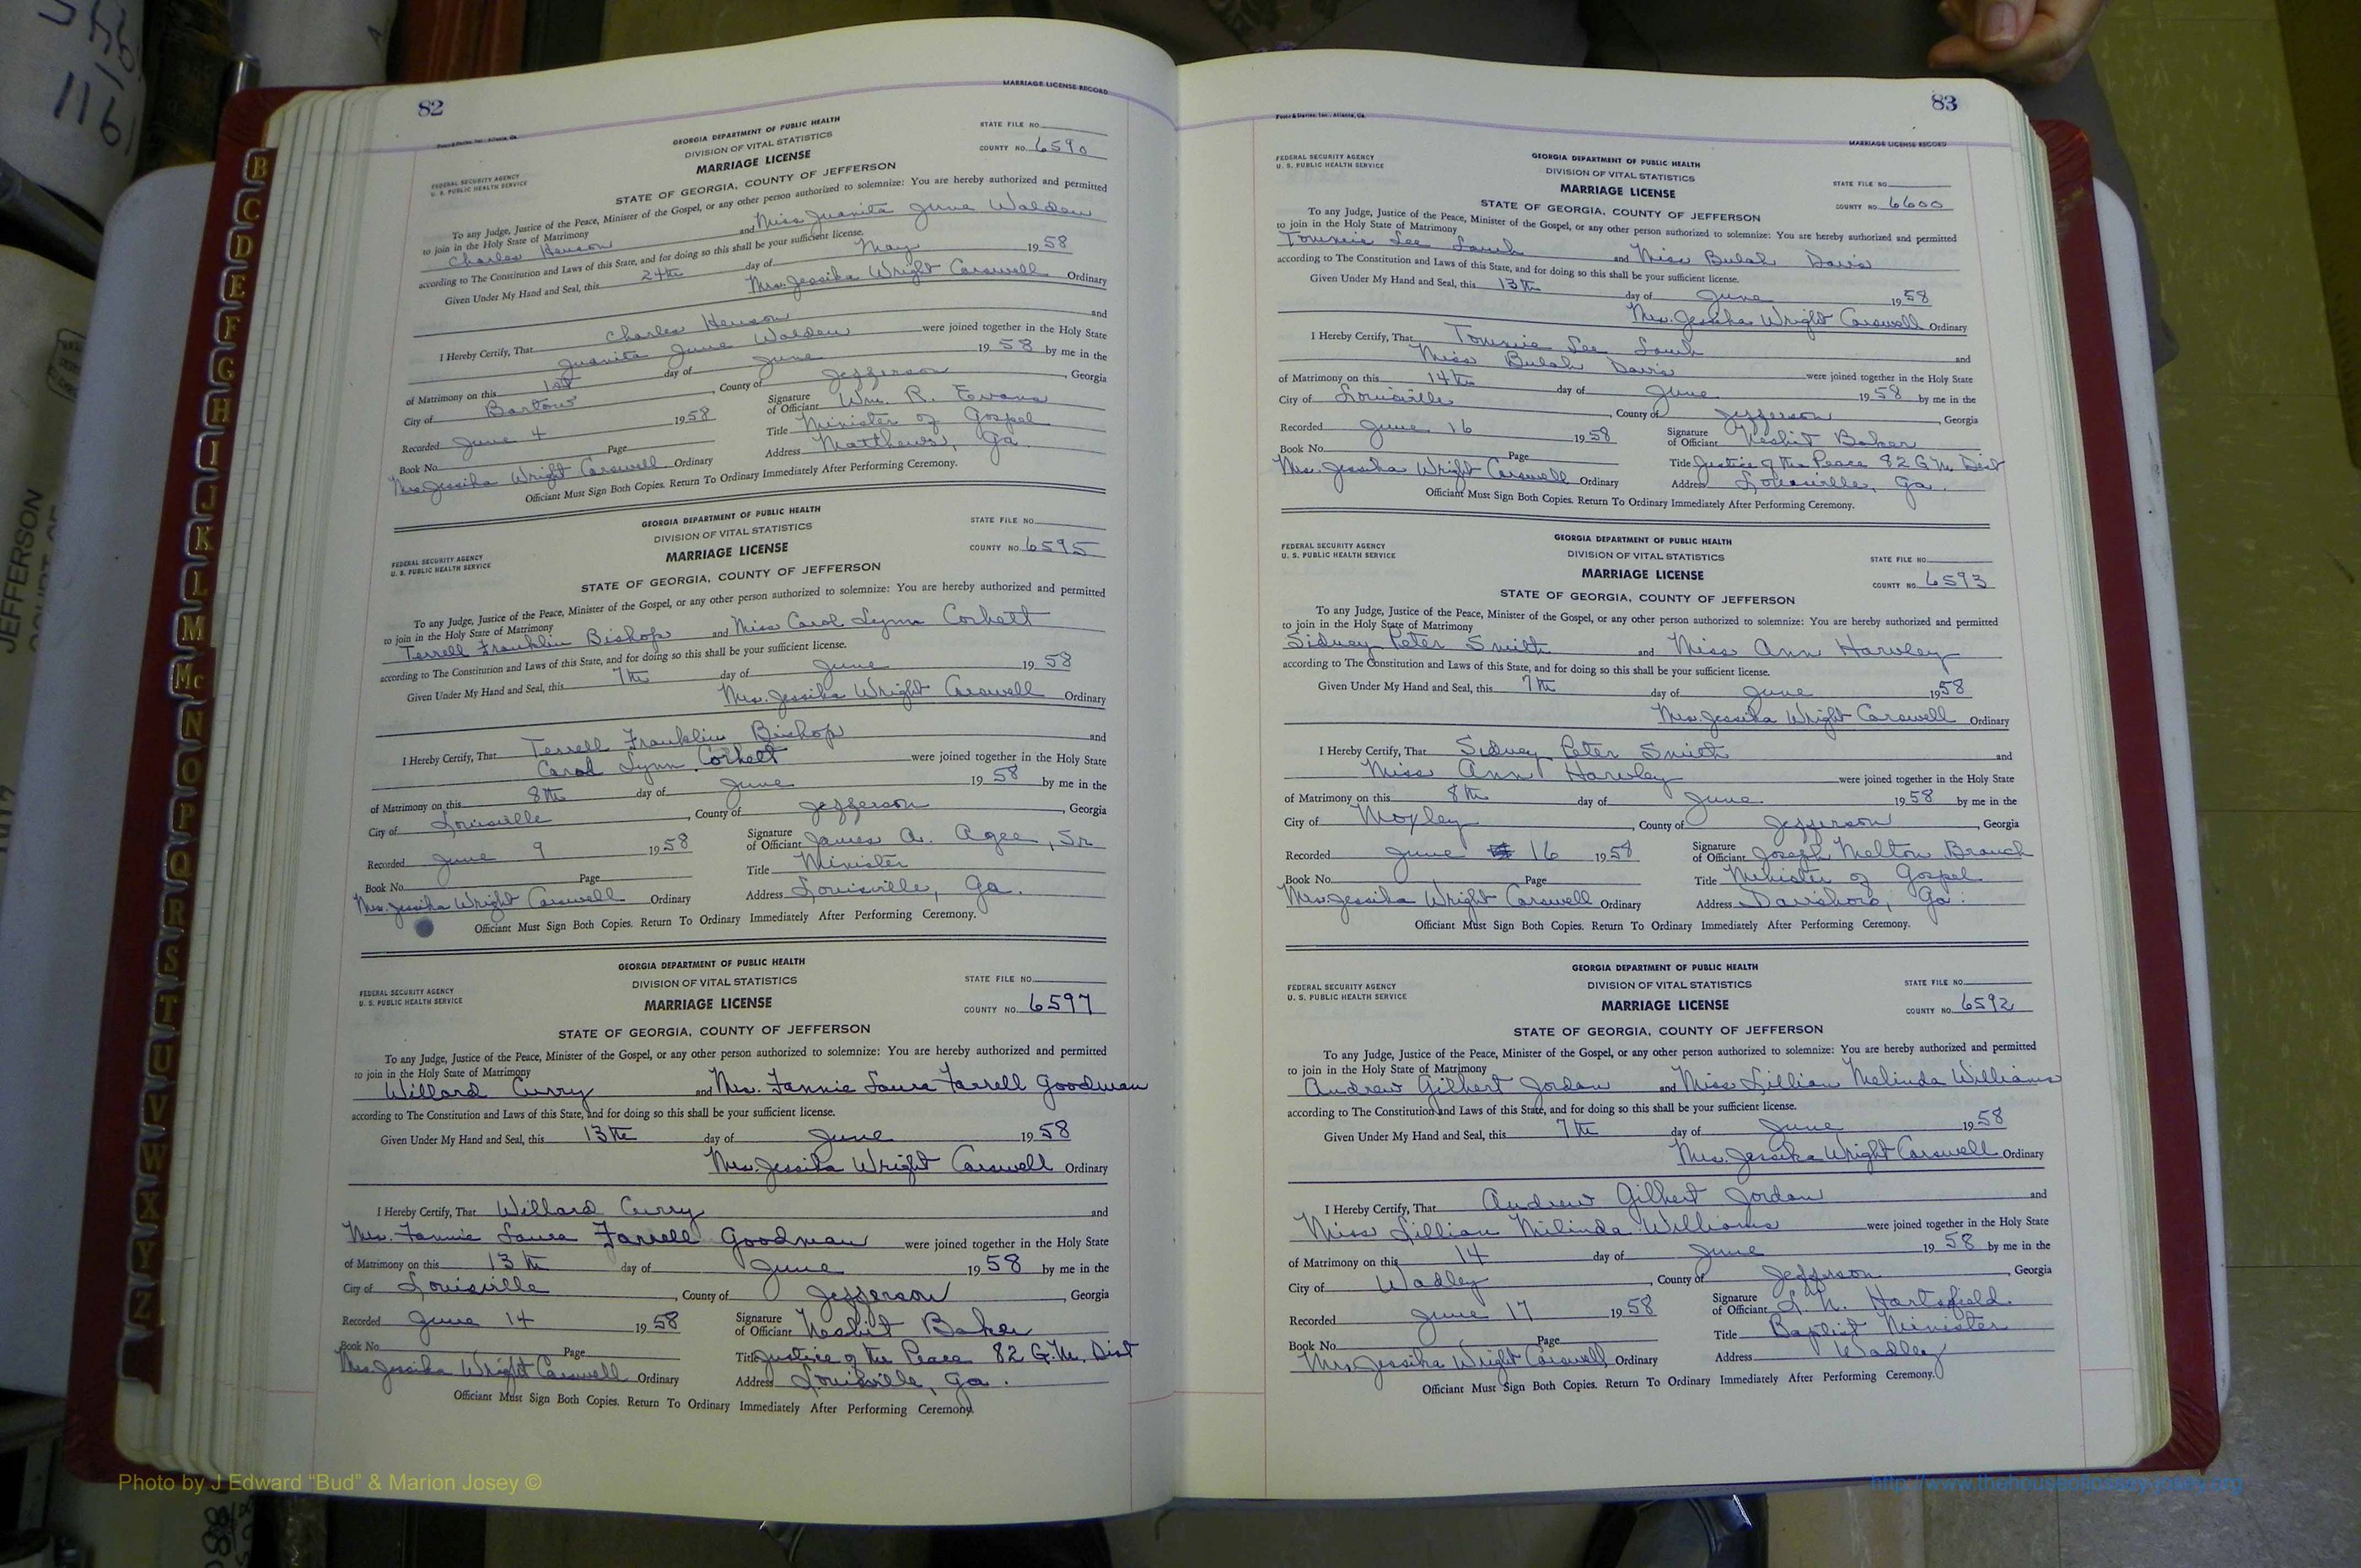 82
MARRIAGE LICENSE RECORD
GEORGIA DEPARTMENT OF PUBLIC HEALTH
DIVISION OF VITAL STATISTICS
MARRIAGE LICENSE
STATE FILE NO.
COUNTY NO. 6590
FEDERAL SECURITY AGENCY
U. S. PUBLIC HEALTH SERVICE
STATE OF GEORGIA, COUNTY OF JEFFERSON
To any Judge, Justice of the Peace, Minister of the Gospel, or any other person authorized to solemnize: You are hereby authorized and permitted
to join in the Holy State of Matrimony
Charles Henson and Miss Juanita June Walden
according to The Constitution and Laws of this State, and for doing so this shall be your sufficient license.
Given Under My Hand and Seal, this 24th day of May 1958
Mrs. Jessika Wright Carswell Ordinary
I Hereby Certify, That Charles Henson and
Juanita June Walden were joined together in the Holy State
of Matrimony on this 1st day of June 1958 by me in the
City of Bartow, County of Jefferson, Georgia
Recorded June 4 1958 Signature of Officiant Wm. R. Evans
Book No. Page Title Minister of Gospel
Mrs. Jessika Wright Carswell Ordinary Address Matthews, Ga.
Officiant Must Sign Both Copies. Return To Ordinary Immediately After Performing Ceremony.
GEORGIA DEPARTMENT OF PUBLIC HEALTH
DIVISION OF VITAL STATISTICS
MARRIAGE LICENSE
STATE FILE NO.
COUNTY NO. 6595
FEDERAL SECURITY AGENCY
U. S. PUBLIC HEALTH SERVICE
STATE OF GEORGIA, COUNTY OF JEFFERSON
To any Judge, Justice of the Peace, Minister of the Gospel, or any other person authorized to solemnize: You are hereby authorized and permitted
to join in the Holy State of Matrimony
Terrell Franklin Bishop and Miss Carol Lynn Corbett
according to The Constitution and Laws of this State, and for doing so this shall be your sufficient license.
Given Under My Hand and Seal, this 7th day of June 1958
Mrs. Jessika Wright Carswell Ordinary
I Hereby Certify, That Terrell Franklin Bishop and
Carol Lynn Corbett were joined together in the Holy State
of Matrimony on this 8th day of June 1958 by me in the
City of Louisville, County of Jefferson, Georgia
Recorded June 9 1958 Signature of Officiant James A. Agee, Sr.
Book No. Page Title Minister
Mrs. Jessika Wright Carswell Ordinary Address Louisville, Ga.
Officiant Must Sign Both Copies. Return To Ordinary Immediately After Performing Ceremony.
GEORGIA DEPARTMENT OF PUBLIC HEALTH
DIVISION OF VITAL STATISTICS
MARRIAGE LICENSE
STATE FILE NO.
COUNTY NO. 6597
FEDERAL SECURITY AGENCY
U. S. PUBLIC HEALTH SERVICE
STATE OF GEORGIA, COUNTY OF JEFFERSON
To any Judge, Justice of the Peace, Minister of the Gospel, or any other person authorized to solemnize: You are hereby authorized and permitted
to join in the Holy State of Matrimony
Willard Curry and Mrs. Fannie Laura Farrell Goodman
according to The Constitution and Laws of this State, and for doing so this shall be your sufficient license.
Given Under My Hand and Seal, this 13th day of June 1958
Mrs. Jessika Wright Carswell Ordinary
I Hereby Certify, That Willard Curry and
Mrs. Fannie Laura Farrell Goodman were joined together in the Holy State
of Matrimony on this 13th day of June 1958 by me in the
City of Louisville, County of Jefferson, Georgia
Recorded June 14 1958 Signature of Officiant Nesbit Baker
Book No. Page Title Justice of the Peace 82 G.M. Dist
Mrs. Jessika Wright Carswell Ordinary Address Louisville, Ga.
Officiant Must Sign Both Copies. Return To Ordinary Immediately After Performing Ceremony.
83
MARRIAGE LICENSE RECORD
FEDERAL SECURITY AGENCY
U. S. PUBLIC HEALTH SERVICE
GEORGIA DEPARTMENT OF PUBLIC HEALTH
DIVISION OF VITAL STATISTICS
MARRIAGE LICENSE
STATE FILE NO.
COUNTY NO. 6600
STATE OF GEORGIA, COUNTY OF JEFFERSON
To any Judge, Justice of the Peace, Minister of the Gospel, or any other person authorized to solemnize: You are hereby authorized and permitted
to join in the Holy State of Matrimony
Tommie Lee Lamb and Miss Bulah Davis
according to The Constitution and Laws of this State, and for doing so this shall be your sufficient license.
Given Under My Hand and Seal, this 13th day of June 1958
Mrs. Jessika Wright Carswell Ordinary
I Hereby Certify, That Tommie Lee Lamb and
Miss Bulah Davis were joined together in the Holy State
of Matrimony on this 14th day of June 1958 by me in the
City of Louisville, County of Jefferson, Georgia
Recorded June 16 1958 Signature of Officiant Nesbit Baker
Book No. Page Title Justice of the Peace 82 G.M. Dist
Mrs. Jessika Wright Carswell Ordinary Address Louisville, Ga.
Officiant Must Sign Both Copies. Return To Ordinary Immediately After Performing Ceremony.
GEORGIA DEPARTMENT OF PUBLIC HEALTH
DIVISION OF VITAL STATISTICS
MARRIAGE LICENSE
STATE FILE NO.
COUNTY NO. 6593
FEDERAL SECURITY AGENCY
U. S. PUBLIC HEALTH SERVICE
STATE OF GEORGIA, COUNTY OF JEFFERSON
To any Judge, Justice of the Peace, Minister of the Gospel, or any other person authorized to solemnize: You are hereby authorized and permitted
to join in the Holy State of Matrimony
Sidney Peter Smith and Miss Ann Harvley
according to The Constitution and Laws of this State, and for doing so this shall be your sufficient license.
Given Under My Hand and Seal, this 7th day of June 1958
Mrs. Jessika Wright Carswell Ordinary
I Hereby Certify, That Sidney Peter Smith and
Miss Ann Harvley were joined together in the Holy State
of Matrimony on this 8th day of June 1958 by me in the
City of Moxley, County of Jefferson, Georgia
Recorded June 16 1958 Signature of Officiant Joseph Melton Branch
Book No. Page Title Minister of Gospel
Mrs. Jessika Wright Carswell Ordinary Address Davisboro, Ga.
Officiant Must Sign Both Copies. Return To Ordinary Immediately After Performing Ceremony.
GEORGIA DEPARTMENT OF PUBLIC HEALTH
DIVISION OF VITAL STATISTICS
MARRIAGE LICENSE
STATE FILE NO.
COUNTY NO. 6592
FEDERAL SECURITY AGENCY
U. S. PUBLIC HEALTH SERVICE
STATE OF GEORGIA, COUNTY OF JEFFERSON
To any Judge, Justice of the Peace, Minister of the Gospel, or any other person authorized to solemnize: You are hereby authorized and permitted
to join in the Holy State of Matrimony
Andrew Gilbert Jordan and Miss Lillian Melinda Williams
according to The Constitution and Laws of this State, and for doing so this shall be your sufficient license.
Given Under My Hand and Seal, this 7th day of June 1958
Mrs. Jessika Wright Carswell Ordinary
I Hereby Certify, That Andrew Gilbert Jordan and
Miss Lillian Milinda Williams were joined together in the Holy State
of Matrimony on this 14 day of June 1958 by me in the
City of Wadley, County of Jefferson, Georgia
Recorded June 17 1958 Signature of Officiant L. N. Hartsfield
Book No. Page Title Baptist Minister
Mrs. Jessika Wright Carswell Ordinary Address Wadley
Officiant Must Sign Both Copies. Return To Ordinary Immediately After Performing Ceremony.
B
C
D
E
F
G
H
I
J
K
L
M
Mc
N
O
P
Q
R
S
T
U
V
W
X
Y
Z
JEFFERSON
Photo by J Edward "Bud" & Marion Josey ©